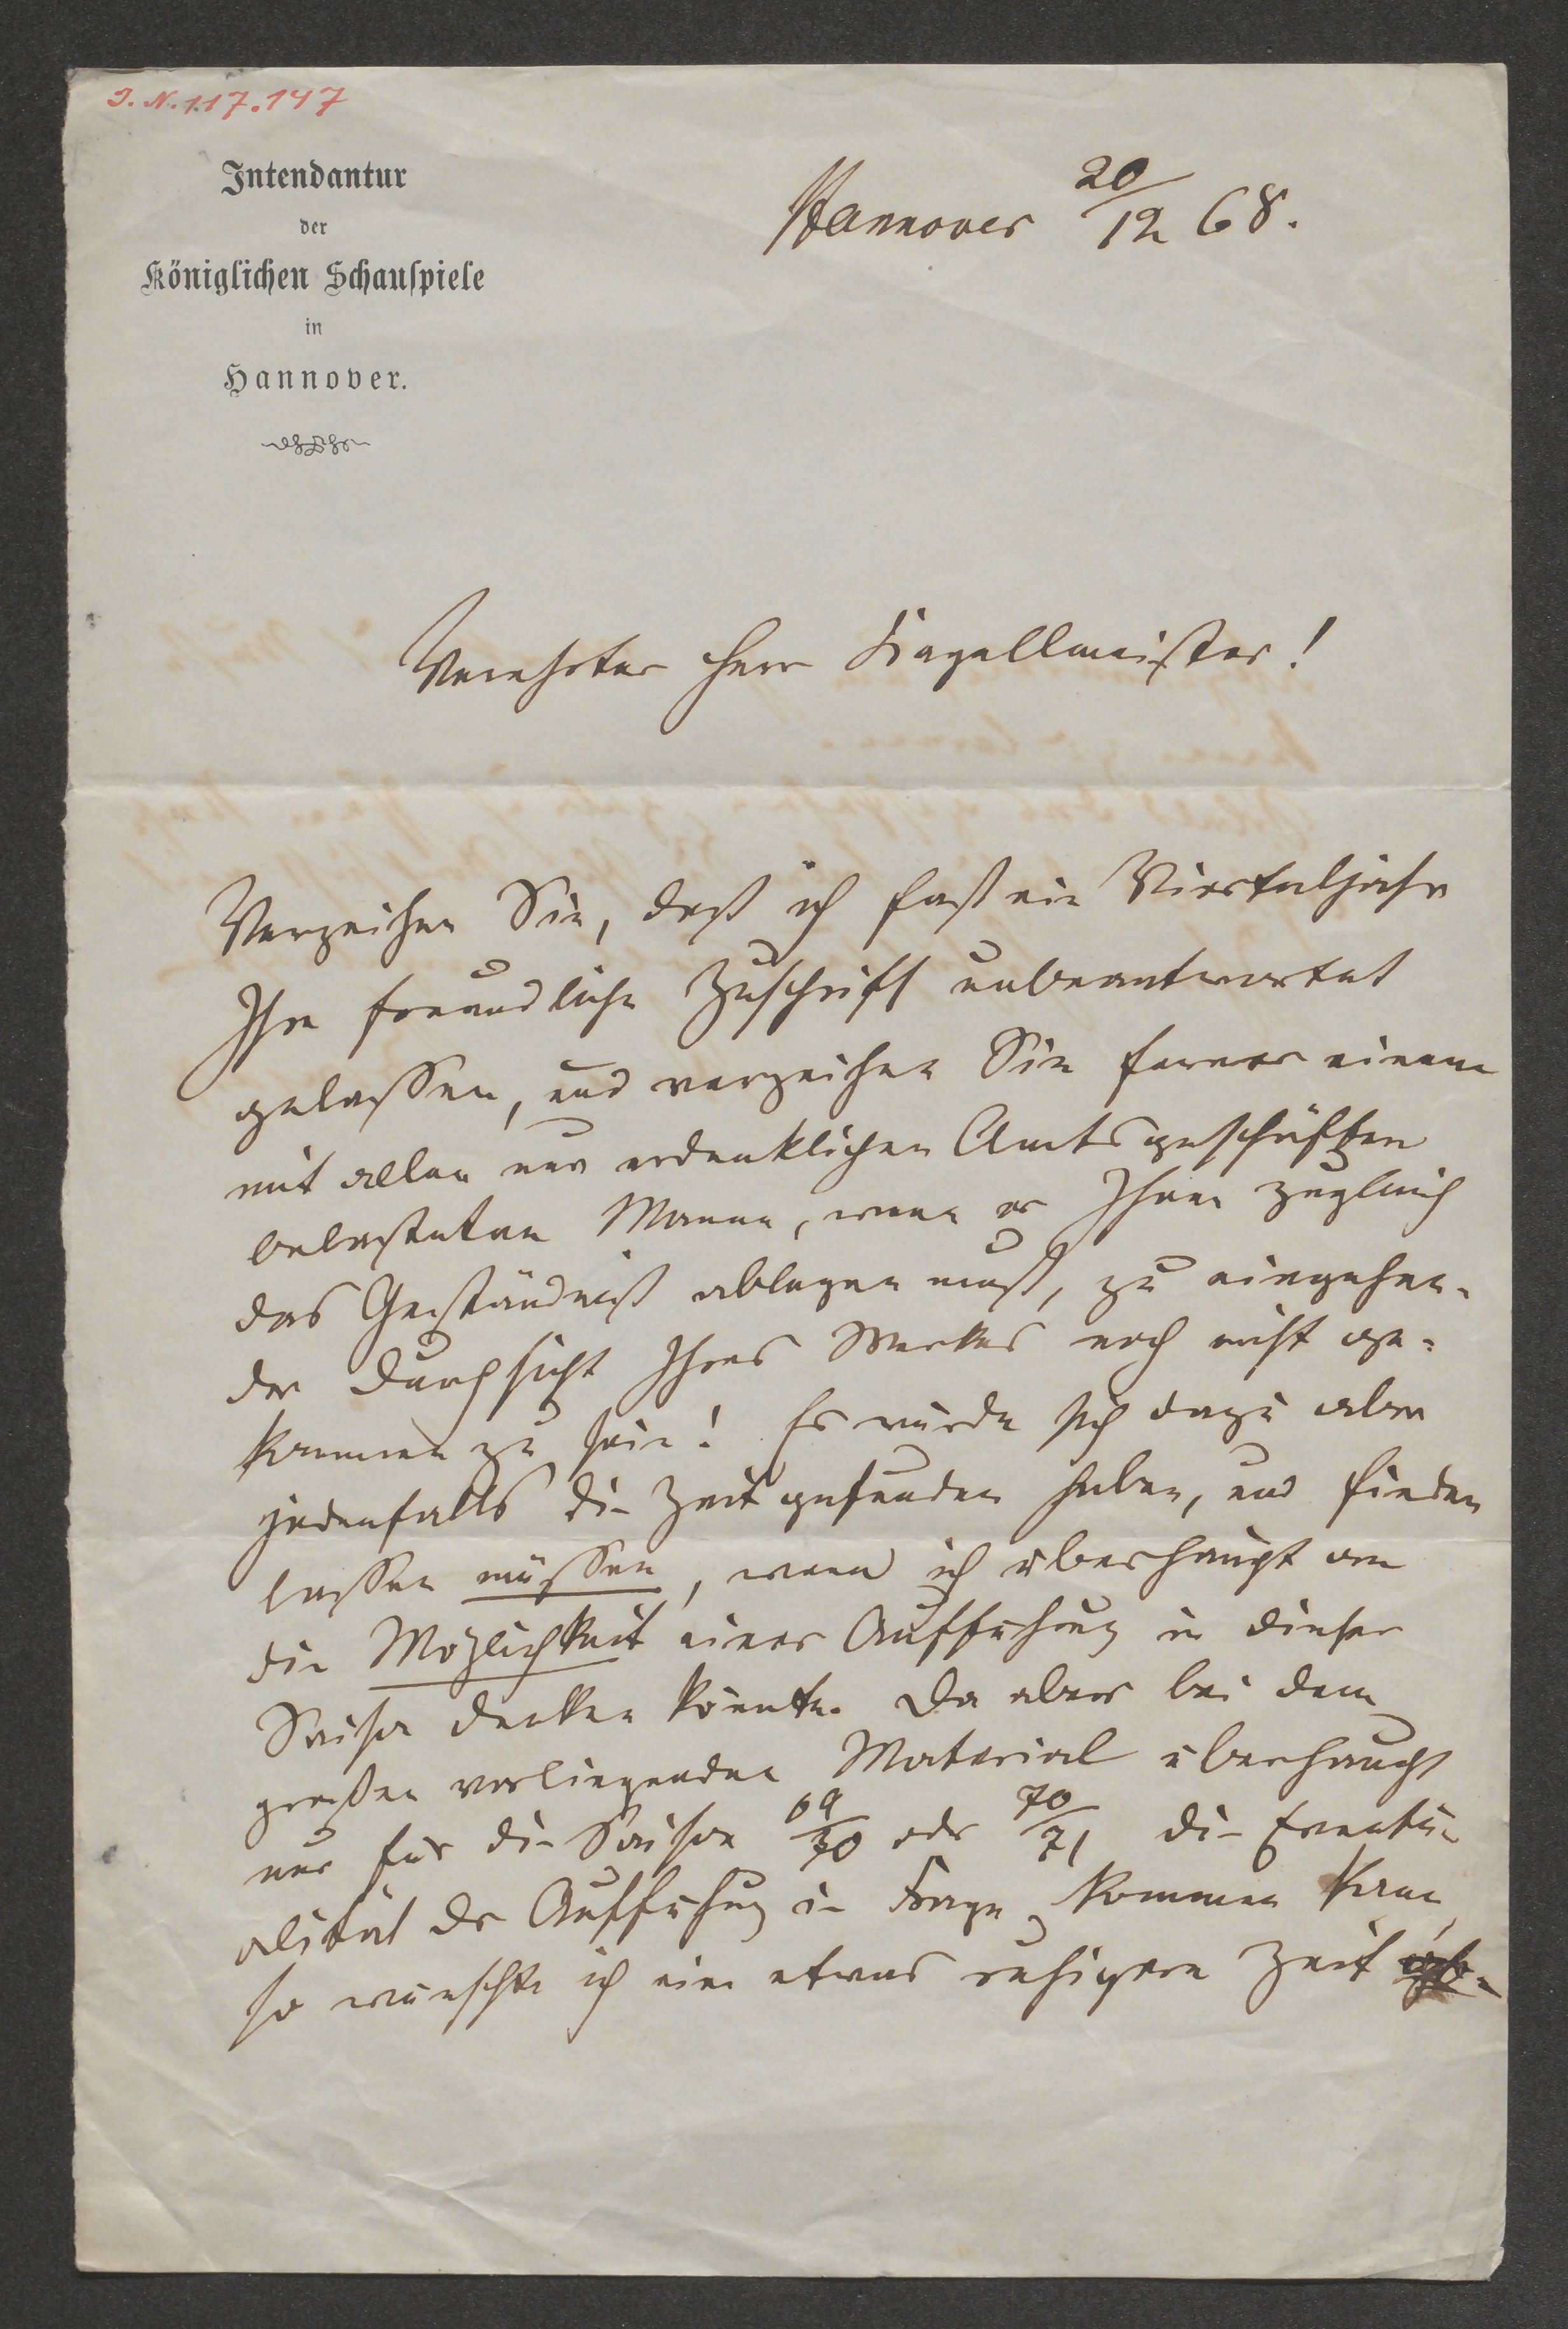 J. N. 117.147
Intendantur
der
Königlichen Schauspiele
in
Hannover.
Hannover 20/12 68.
Verehrter Herr Kapellmeister!
Verzeihen Sie, daß ich fast ein Vierteljahr
Ihre freundliche Zuschrift unbeantwortet
gelassen, und verzeihen Sie ferner einem
mit allen nur erdenklichen Amtsgeschäften
belasteten Manne, wenn er Ihnen zugleich
das Geständniß ablegen muß, zu eingehen-
der Durchsicht Ihres Werkes noch nicht ge-
kommen zu sein! Es würde sich dazu aber
jedenfalls die Zeit gefunden haben, und finden
lassen müssen, wenn ich überhaupt an
die Möglichkeit einer Aufführung in dieser
Saison denken könnte. Da aber bei dem
großen vorliegenden Material überhaupt
nur für die Saison 69/70 oder 70/71 die Eventu-
alität der Aufführung in Frage kommen kann,
so wünschte ich eine etwas ruhigere Zeit